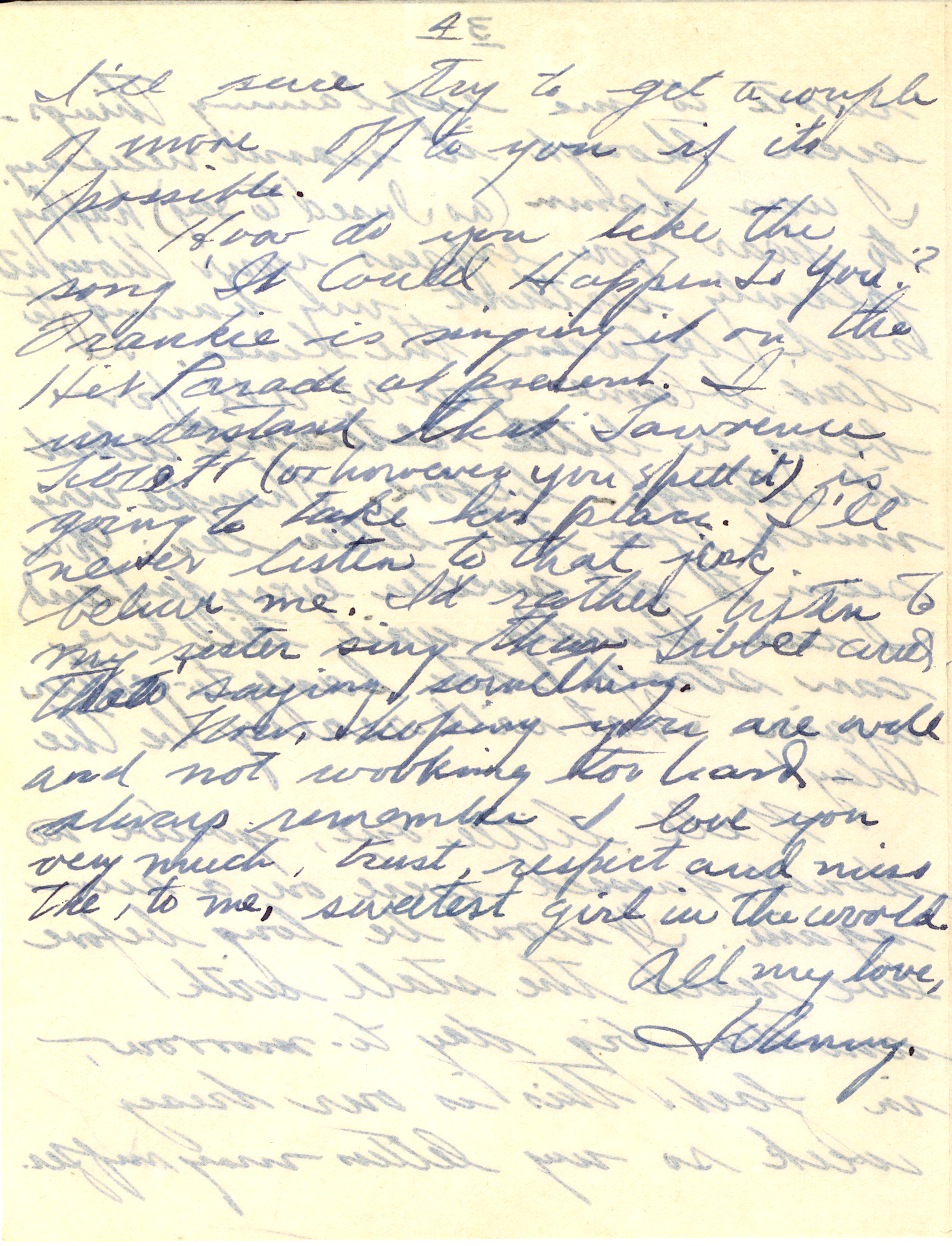 4
I'll sure try to get a couple
of more off to you if its
possible.
How do you like the
song "It Could Happen To You"?
Frankie is singing it on the
Hit Parade at present. I
understand that Lawrence
Tibbett (or however you spell it) is
going to take his place. I'll
never listen to that jerk
believe me. I'd rather listen to
my sister sing than Tibbet and,
thats saying something.
Now, hoping you are well
and not working too hard -
always remember I love you
very much, trust, respect and miss
the, to me, sweetest girl in the world.
All my love,
Johnny.